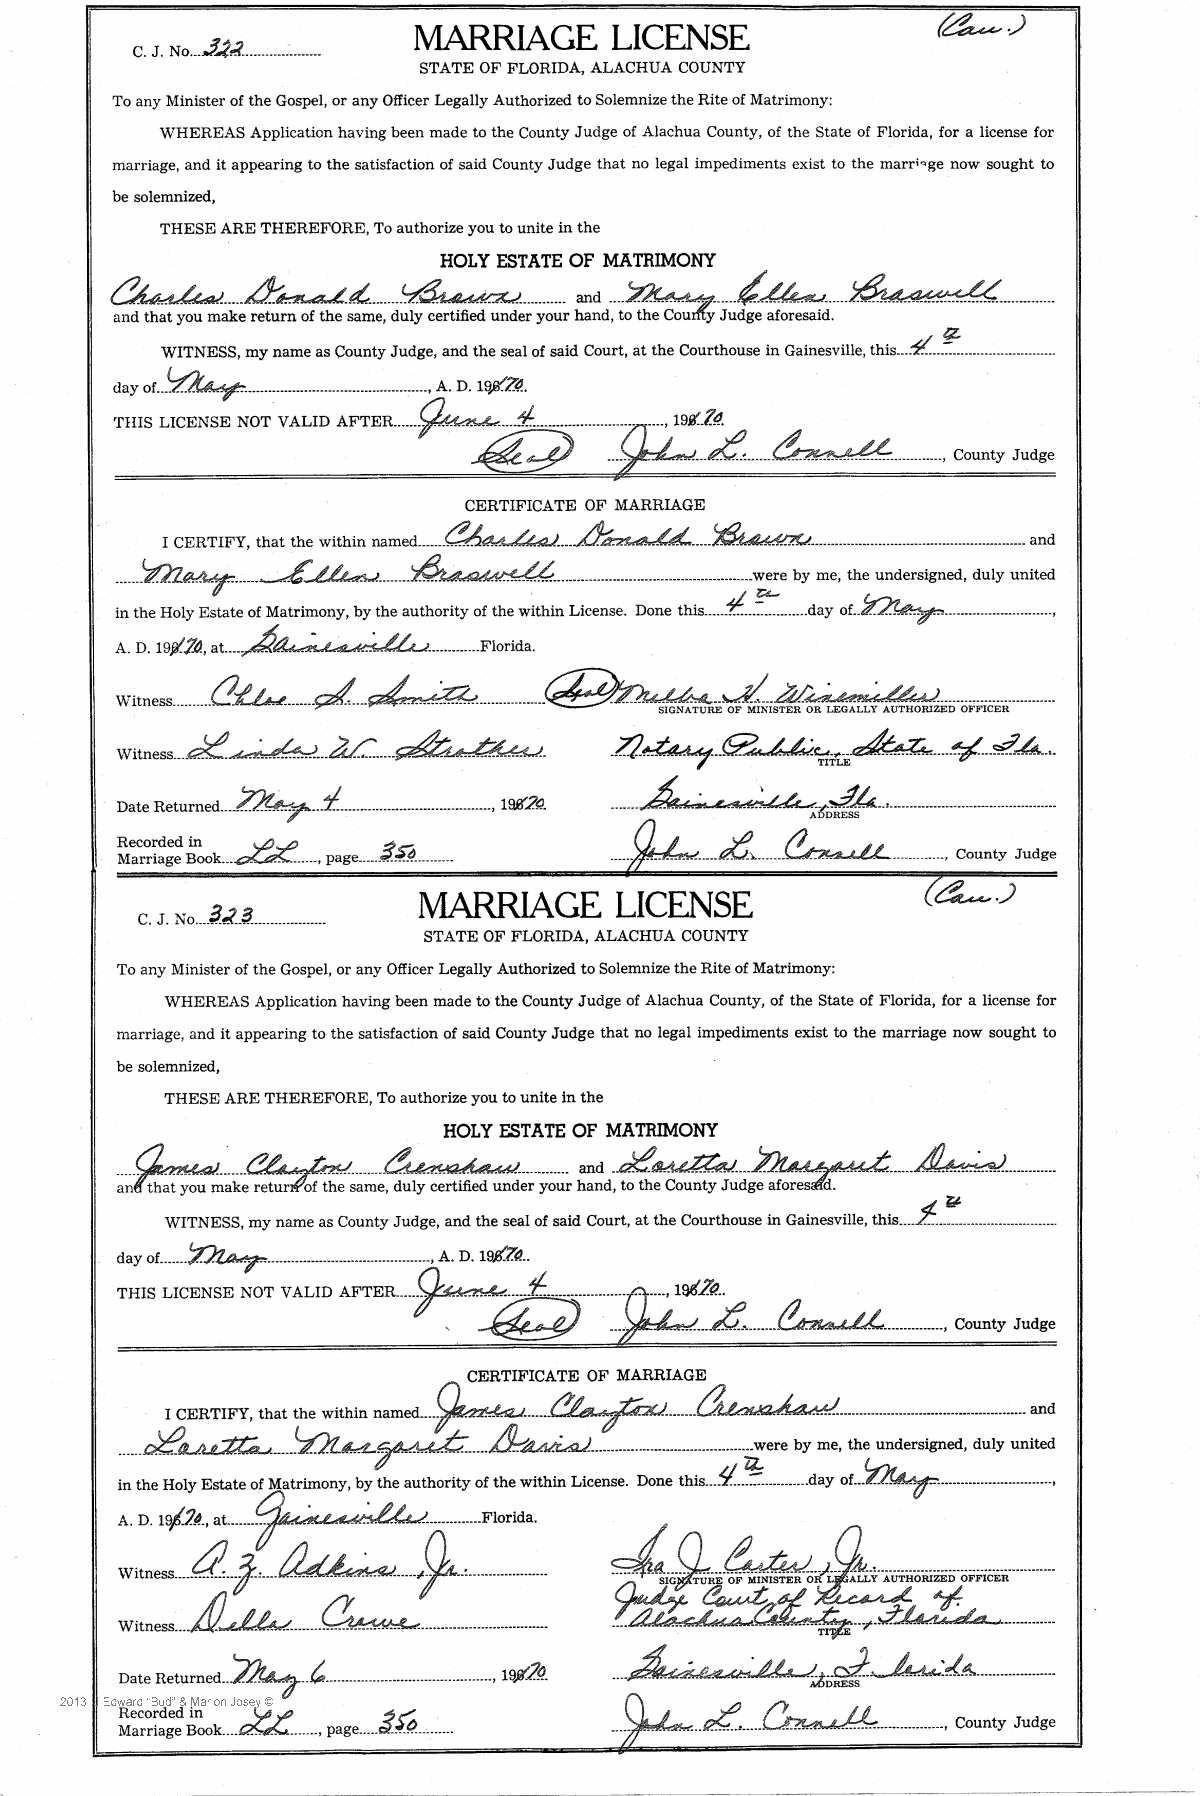 (Cau.)
C. J. No. 322 MARRIAGE LICENSE
STATE OF FLORIDA, ALACHUA COUNTY
To any Minister of the Gospel, or any Officer Legally Authorized to Solemnize the Rite of Matrimony:
WHEREAS Application having been made to the County Judge of Alachua County, of the State of Florida, for a license for
marriage, and it appearing to the satisfaction of said County Judge that no legal impediments exist to the marriage now sought to
be solemnized,
THESE ARE THEREFORE, To authorize you to unite in the
HOLY ESTATE OF MATRIMONY
Charles Donald Brown and Mary Ellen Braswell
and that you make return of the same, duly certified under your hand, to the County Judge aforesaid.
WITNESS, my name as County Judge, and the seal of said Court, at the Courthouse in Gainesville, this 4th
day of May, A. D. 1970.
THIS LICENSE NOT VALID AFTER June 4, 1970.
(Seal) John L. Connell, County Judge
CERTIFICATE OF MARRIAGE
I CERTIFY, that the within named Charles Donald Brown and
Mary Ellen Braswell were by me, the undersigned, duly united
in the Holy Estate of Matrimony, by the authority of the within License. Done this 4th day of May,
A. D. 1970, at Gainesville Florida.
Witness Chloe S. Smith (Seal) Melba H. Winemiller
SIGNATURE OF MINISTER OR LEGALLY AUTHORIZED OFFICER
Witness Linda W. Strother Notary Public, State of Fla.
TITLE
Date Returned May 4, 1970 Gainesville, Fla.
ADDRESS
Recorded in
Marriage Book LL, page 350 John L. Connell, County Judge
(Cau.)
C. J. No. 323 MARRIAGE LICENSE
STATE OF FLORIDA, ALACHUA COUNTY
To any Minister of the Gospel, or any Officer Legally Authorized to Solemnize the Rite of Matrimony:
WHEREAS Application having been made to the County Judge of Alachua County, of the State of Florida, for a license for
marriage, and it appearing to the satisfaction of said County Judge that no legal impediments exist to the marriage now sought to
be solemnized,
THESE ARE THEREFORE, To authorize you to unite in the
HOLY ESTATE OF MATRIMONY
James Clayton Crenshaw and Loretta Margaret Davis
and that you make return of the same, duly certified under your hand, to the County Judge aforesaid.
WITNESS, my name as County Judge, and the seal of said Court, at the Courthouse in Gainesville, this 4th
day of May, A. D. 1970.
THIS LICENSE NOT VALID AFTER June 4, 1970.
(Seal) John L. Connell, County Judge
CERTIFICATE OF MARRIAGE
I CERTIFY, that the within named James Clayton Crenshaw and
Loretta Margaret Davis were by me, the undersigned, duly united
in the Holy Estate of Matrimony, by the authority of the within License. Done this 4th day of May,
A. D. 1970, at Gainesville Florida.
Witness A. Z. Adkins, Jr. Ira J. Carter, Jr.
SIGNATURE OF MINISTER OR LEGALLY AUTHORIZED OFFICER
Judge Court of Record of
Witness Della Crowe Alachua County, Florida
TITLE
Date Returned May 6, 1970 Gainesville, Florida
ADDRESS
2013 Edward "Bud" & Marion Josey ©
Recorded in
Marriage Book LL, page 350 John L. Connell, County Judge